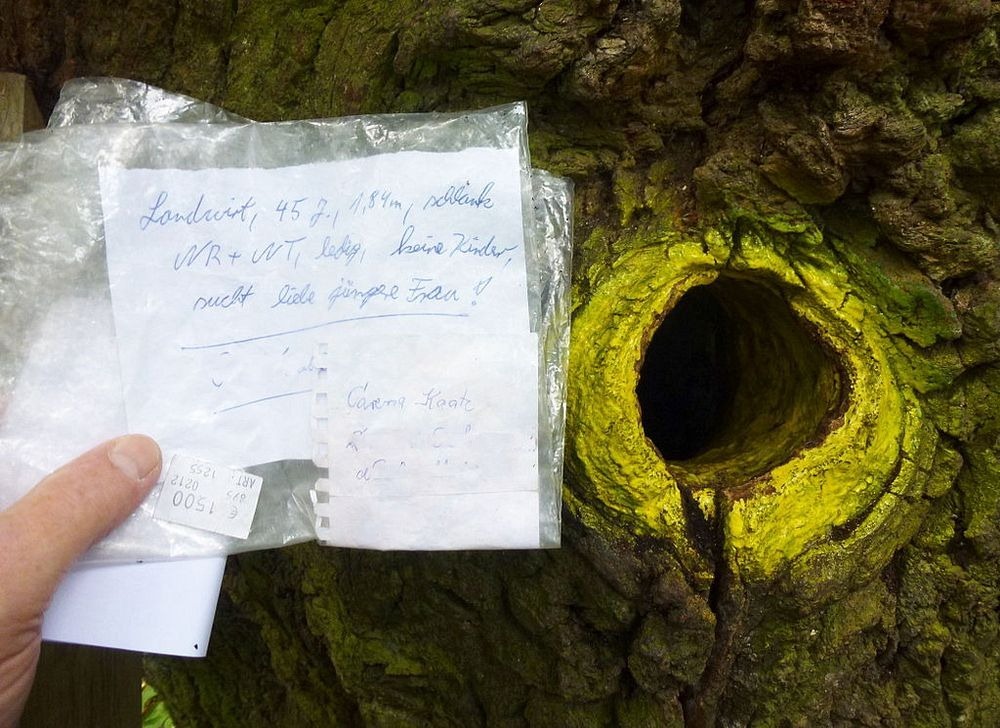 Landwirt, 45 J., 1,84m, schlank
NR + NT, ledig, keine Kinder,
sucht liebe jüngere Frau!
Carena Kaatz
€ 1500
895 0212
ART. 1255